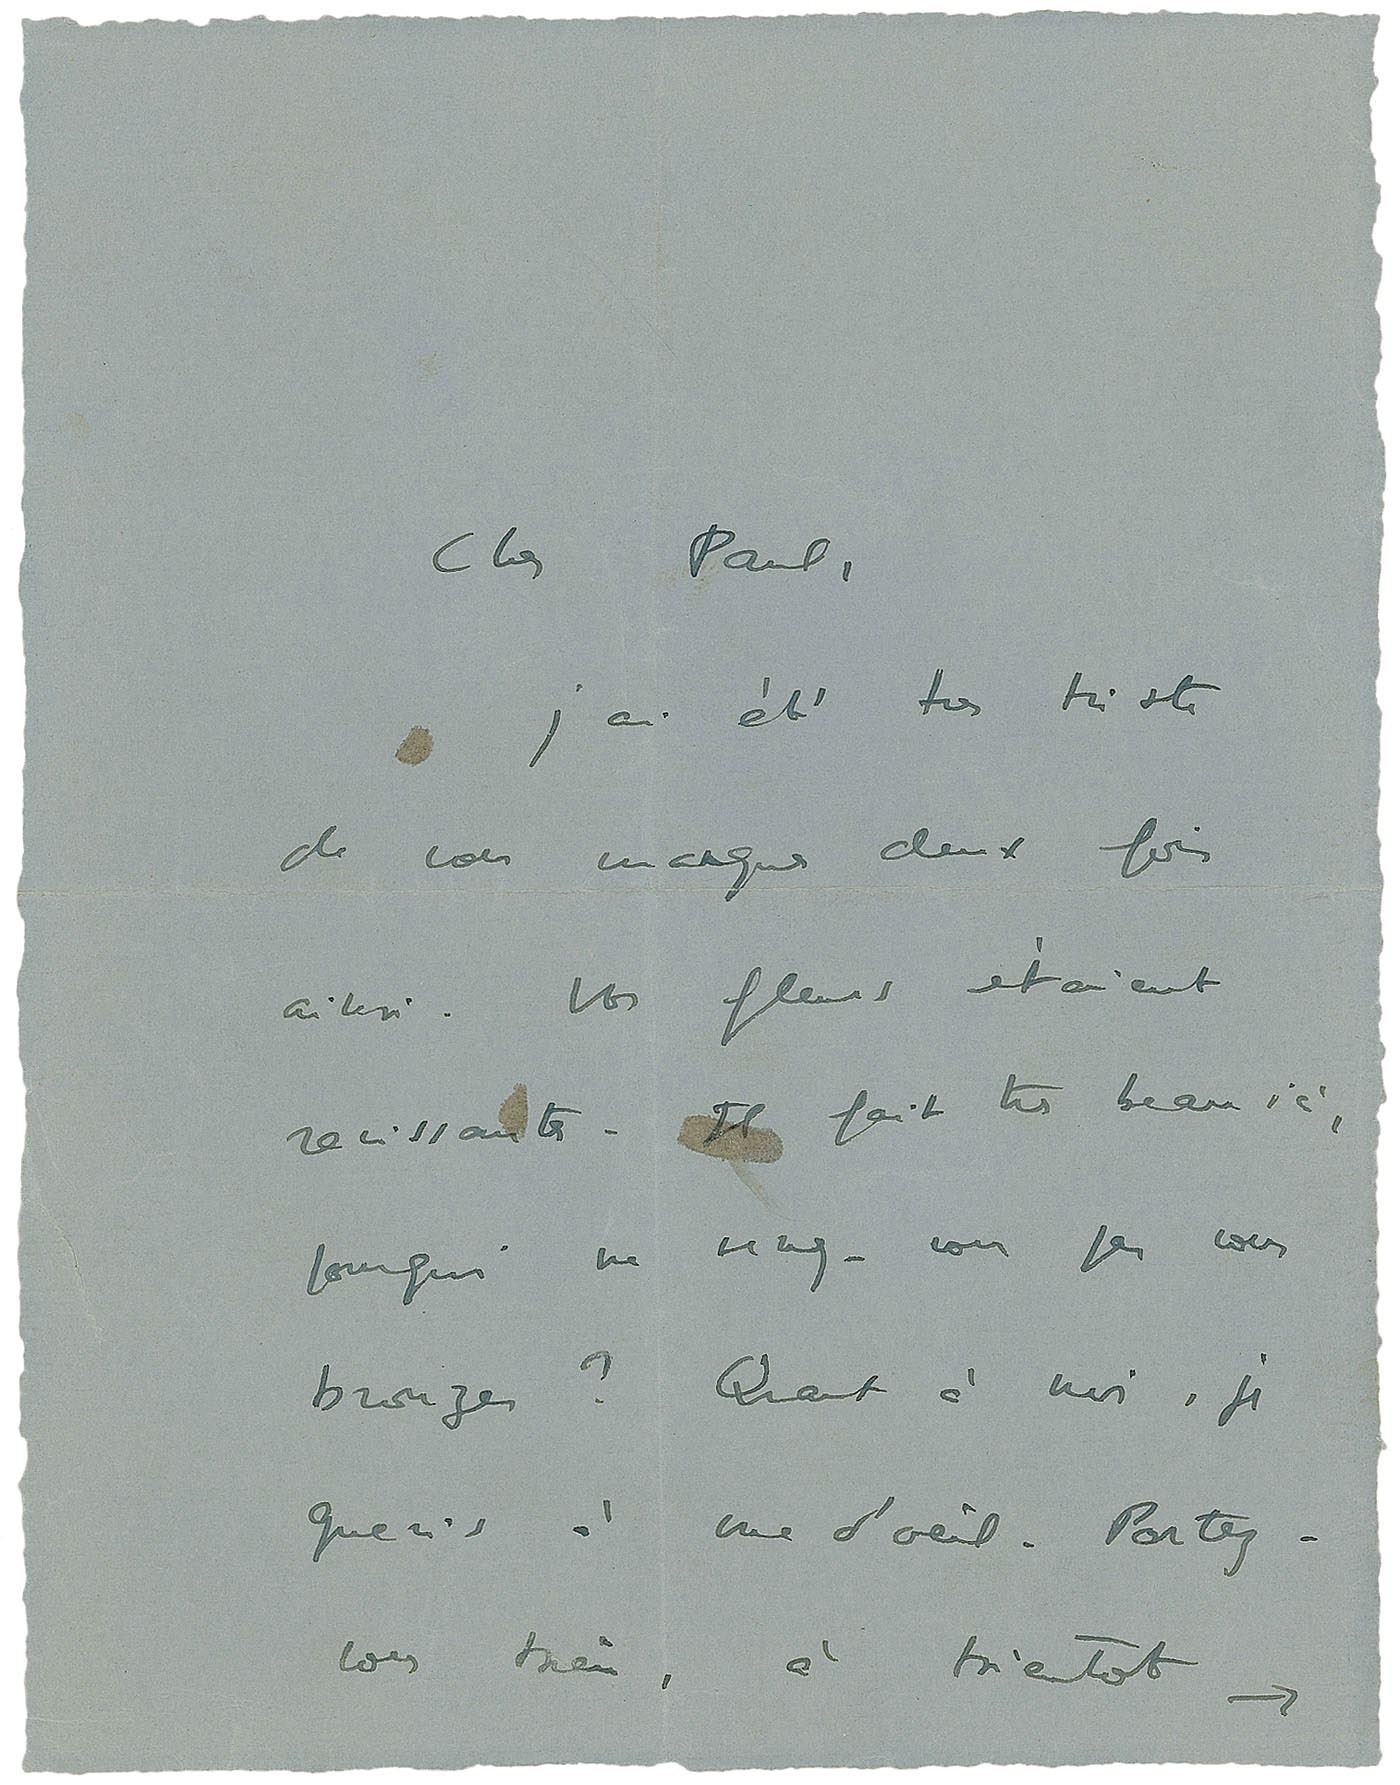 Cher Paul,
j'ai été très triste
de vous manquer deux fois
ainsi. Vos fleurs étaient
ravissantes. Il fait très beau ici,
pourquoi ne venez-vous pas vous
bronzer ? Quant à moi, je
guéris à vue d'oeil. Portez-
vous bien, à bientôt →